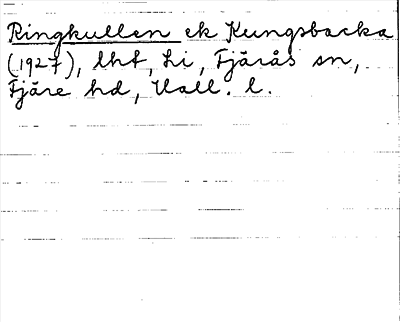 Ringkullen ek Kungsbacka
(1927), lht, Li, Fjärås sn,
Fjäre hd, Hall. l.